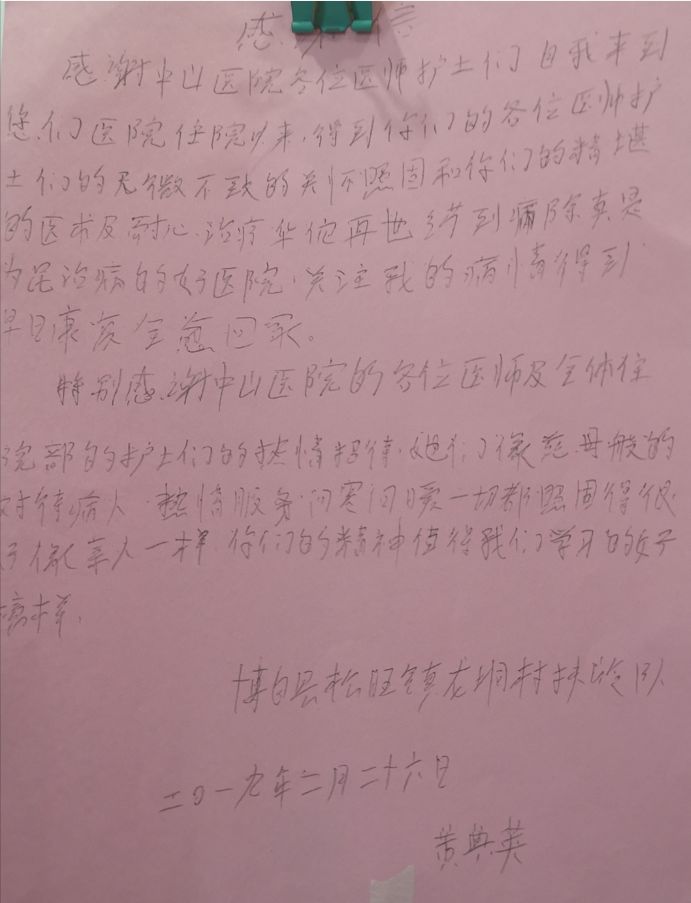 感谢信
感谢中山医院各位医师护士们自我来到
您们医院住院以来,得到你们的各位医师护
士们的无微不致的关怀照固和你们的精堪
的医术及耐心治疗华佗再世 到病除真是
为民治病的好医院,关注我的病情得到
早日康复全愈回家。
特别感谢中山医院的各位医师及全体住
院部的护士们的热情招待,她们像慈母般的
对待病人,热情服务,问寒问暖一切都照固得很
好像亲人一样,你们的精神值得我们学习的好
榜样,
博白县松旺镇龙垌村扶 队
二0一九年二月二十六日
黄典英